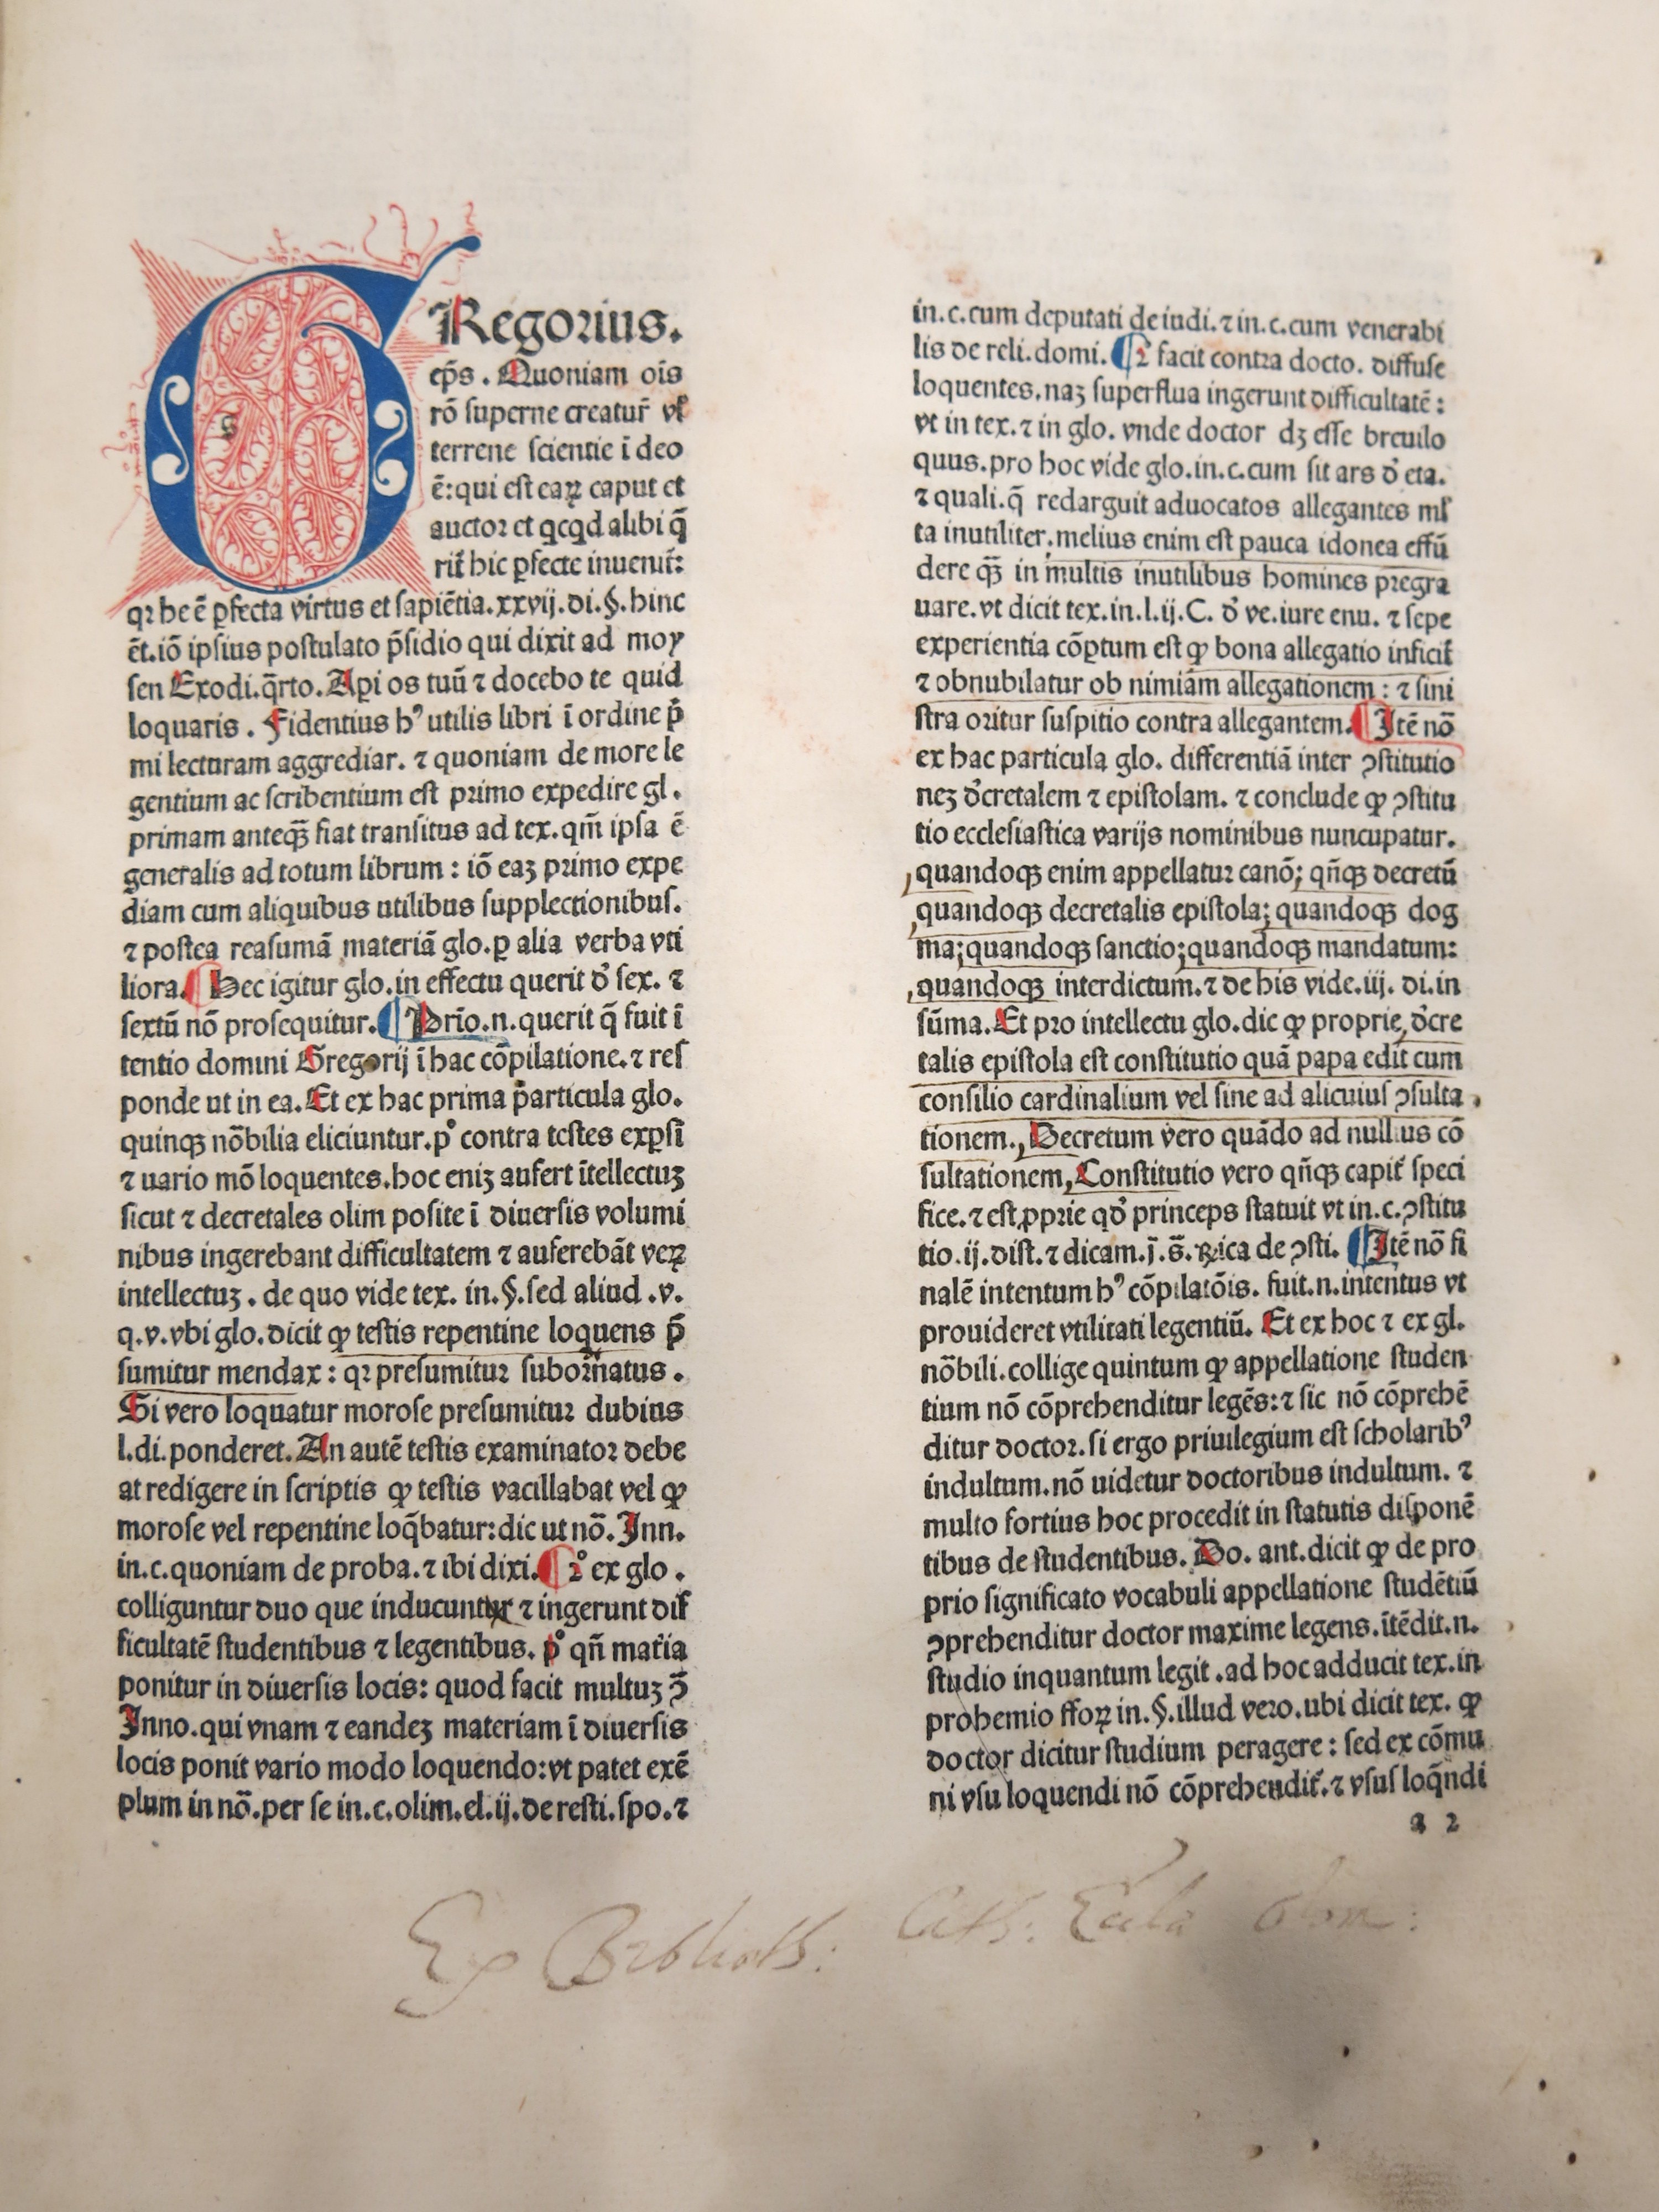 GRegorius.
ep̃s . Quoniam oı̃s
rõ superne creatur̃ vł
terrene scientie ĩ deo
ẽ: qui est eaꝝ caput et
auctor et qcqd alibi q̃
rit̃ hic ꝑfecte inuenit̃:
qꝛ he ẽ ꝑfecta virtus et sapiẽtia.xxvij.di.§.hinc
ẽt.iõ ipsius postulato p̃sidio qui dixit ad moy
sen Exodi.q̃rto. Aꝑi os tuũ ⁊ docebo te quid
loquaris . Fidentius hꝰ utilis libri ĩ ordine p̃
mi lecturam aggrediar. ⁊ quoniam de more le
gentium ac scribentium est primo expedire gl .
primam anteqꝫ̃ fiat transitus ad tex. qm̃ ipsa ẽ
generalis ad totum librum : iõ eaꝫ primo expe
diam cum aliquibus utilibus supplectionibus.
⁊ postea reasumã materiã glo. ꝑ alia verba vti
liora. ¶ Hec igitur glo.in effectu querit d̉ sex. ⁊
sextũ nõ prosequitur. ¶ Prı̃o.n.querit q̃ fuit ĩ
tentio domini Gregorij ĩ hac cõpilatione. ⁊ res
ponde ut in ea. Et ex hac prima p̃articula glo.
quinqꝫ nõbilia eliciuntur.p° contra testes exp̱sĩ
⁊ uario mõ loquentes.hoc eniꝫ aufert ĩtellectuꝫ
sicut ⁊ decretales olim posite ĩ diuersis volumi
nibus ingerebant difficultatem ⁊ auferebãt veꝝ
intellectuꝫ . de quo vide tex. in.§.sed aliud .v.
q.v.vbi glo.dicit ꝙ testis repentine loquens p̃
sumitur mendax : qꝛ presumitur subornatus .
Si vero loquatur morose presumitur dubius
l.di.ponderet. An autẽ testis examinator debe
at redigere in scriptis ꝙ testis vacillabat vel ꝙ
morose vel repentine loq̃batur:dic ut nõ. Inn.
in.c.quoniam de proba. ⁊ ibi dixi. ¶ 2° ex glo .
colliguntur duo que inducuntur ⁊ ingerunt dif
ficultatẽ studentibus ⁊ legentibus. p° qñ mat̃ia
ponitur in diuersis locis: quod facit multuꝫ ↄ̃
Inno.qui vnam ⁊ eandeꝫ materiam ĩ diuersis
locis ponit vario modo loquendo:vt patet exẽ
plum in nõ.per se in.c.olim.el.ij.de resti.spo. ⁊
in.c.cum deputati de iudi. ⁊ in.c.cum venerabi
lis de reli.domi. ¶ 2 facit contra docto. diffuse
loquentes.naꝫ superflua ingerunt difficultatẽ :
vt in tex. ⁊ in glo. vnde doctor dꝫ esse breuilo
quus.pro hoc vide glo.in.c.cum sit ars d̉ eta.
⁊ quali.q̃ redarguit aduocatos allegantes ml̃
ta inutiliter.melius enim est pauca idonea effũ
dere qꝫ̃ in multis inutilibus homines pregra
uare.vt dicit tex.in.l.ij.C. d̉ ve.iure enu. ⁊ sepe
experientia cõꝑtum est ꝙ bona allegatio inficit̃
⁊ obnubilatur ob nimiam allegationem : ⁊ sini
stra oritur suspitio contra allegantem. ¶ Itẽ nõ
ex hac particula glo. differentiã inter ↄstitutio
neꝫ d̉cretalem ⁊ epistolam. ⁊ conclude ꝙ ↄstitu
tio ecclesiastica varijs nominibus nuncupatur.
quandoqꝫ enim appellatur canõ; qñqꝫ decretũ
quandoqꝫ decretalis epistola; quandoqꝫ dog
ma;quandoqꝫ sanctio;quandoqꝫ mandatum:
quandoqꝫ interdictum. ⁊ de his vide.iij. di.in
sũma. Et pro intellectu glo.dic ꝙ proprie, d̉cre
talis epistola est constitutio quã papa edit cum
consilio cardinalium vel sine ad alicuius ↄsulta
tionem., Decretum vero quãdo ad nullius cõ
sultationem, Constitutio vero qñqꝫ capit̃ speci
fice. ⁊ est ꝓprie qd̉ princeps statuit vt in.c.ↄstitu
tio.ij.dist. ⁊ dicam.j.s̃.ꝶica de ↄsti. ¶ Itẽ nõ fi
nalẽ intentum hꝰ cõpilatõis. fuit.n.intentus vt
prouideret vtilitati legentiũ. Et ex hoc ⁊ ex gl.
nõbili.collige quintum ꝙ appellatione studen
tium nõ cõprehenditur legẽs: ⁊ sic nõ cõprehẽ
ditur doctor.si ergo priuilegium est scholaribꝰ
indultum.nõ uidetur doctoribus indultum. ⁊
multo fortius hoc procedit in statutis disponẽ
tibus de studentibus. Do. ant.dicit ꝙ de pro
prio significato vocabuli appellatione studẽtiũ
ↄprehenditur doctor maxime legens.ĩtẽdit.n.
studio inquantum legit .ad hoc adducit tex.in
prohemio ffoꝝ in.§.illud vero.ubi dicit tex. ꝙ
doctor dicitur studium peragere : sed ex cõmu
ni vsu loquendi nõ cõprehendit̃. ⁊ vsus loq̃ndi
a 2
Ex Biblioth: Cath: Eccla Olom: